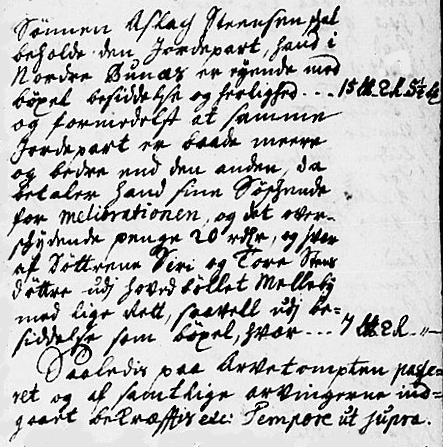 Sønnen Aslach Steensen, skal
beholde den Jordepart, hand i
Nordre Bunæs er eyende med
böxel besiddelse og herlighed ... 15 ℔ 2 R 5½
og formedelst at samme
Jordepart er baade meere
og bedre end den anden, da
betaler hand sine Söskende
for meliorationen, og det over-
skydende penge 20 rdlr, og hver
af Döttrene Siri og Tore Steens
döttre udj hovedböllet Melleby
med lige Rett, saavell udj be-
siddelse som böxel, hvær ... 7 ℔ 2 R "-
Saaledis paa Arvetompten passe-
ret og af samtlige arvingerne ind-
gaaet bekræfftis etc: Tempore ut supra.